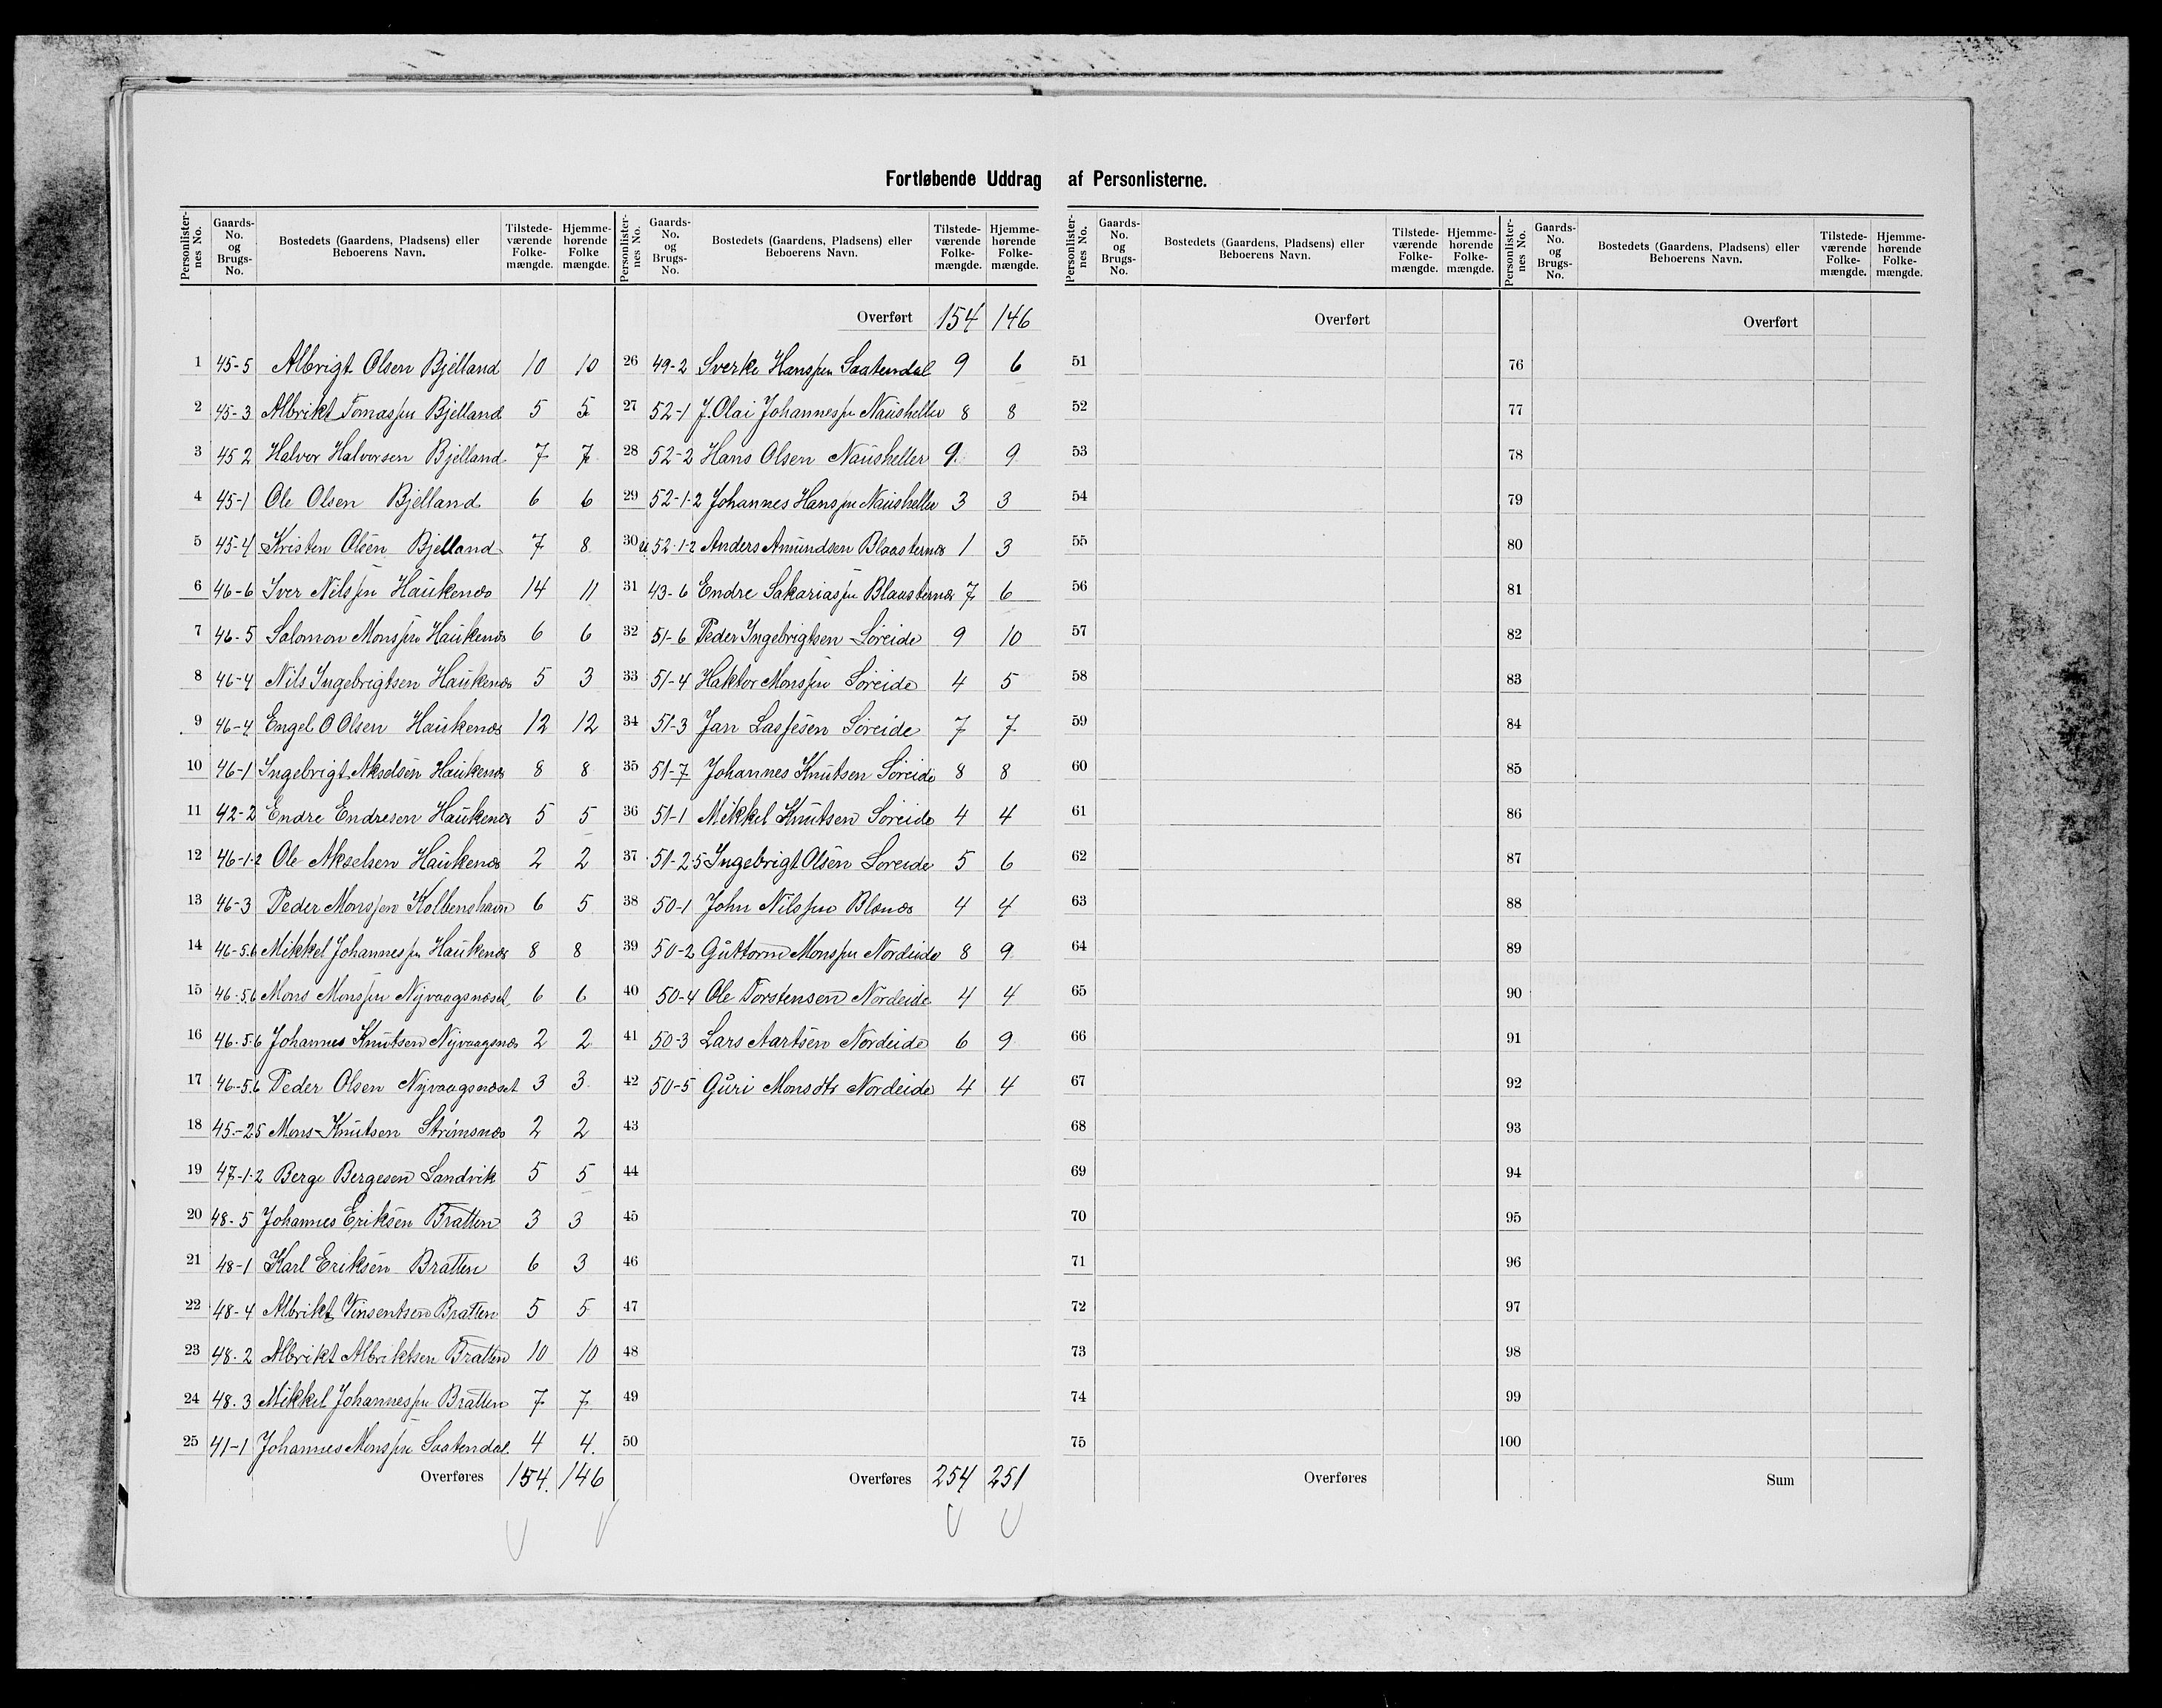 Fortløbende Uddrag af Personlisterne.
Personlister-nes No. Gaards-No. og Brugs-No. Bostedets (Gaardens, Pladsens) eller Beboerens Navn. Tilstede-værende Folke-mængde. Hjemme-hørende Folke mængde.
1 45-5 Albrigt Olsen Bjelland 10 10
2 45-3 Albrikt Tomassen Bjelland 5 5
3 45 2 Halvor Halvorsen Bjelland 7 7
4 45-1 Ole Olsen Bjelland 6 6
5 45-4 Kristen Olsen Bjelland 7 8
6 46-6 Iver Nilssen Haukenæs 14 11
7 46-5 Salomon Monssen Haukenæs 6 6
8 46-4 Nils Ingebrigtsen Haukenæs 5 3
9 46-4 Engel O Olsen Haukenæs 12 12
10 46-1 Ingebrigt Akselsen Haukenæs 8 8
11 42-2 Endre Endresen Haukenæs 5 5
12 46-1-2 Ole Akselsen Haukenæs 2 2
13 46-3 Peder Monssen Kolbenshavn 6 5
14 46-5.6 Mikkel Johannessen Haukenæs 8 8
15 46-5.6 Mons Monssen Nyvaagsnæset 6 6
16 46-5.6 Johannes Knutsen Nyvaagsnæs 2 2
17 46-5.6 Peder Olsen Nyvaagsnæset 3 3
18 45-25 Mons Knutsen Strømsnæs 2 2
19 47-1-2 Berge Bergesen Sandvik 5 5
20 48-5 Johannes Eriksen Bratten 3 3
21 48-1 Karl Eriksen Bratten 6 3
22 48-4 Albrikt Vinsentsen Bratten 5 5
23 48-2 Albrikt Albriktsen Bratten 10 10
24 48-3 Mikkel Johannessen Bratten 7 7
25 41-1 Johannes Monssen Saatendal 4 4.
Overføres 154. 146
Personlister-nes No. Gaards-No. og Brugs-No. Bostedets (Gaardens, Pladsens) eller Beboerens Navn. Tilstede-værende Folke-mængde. Hjemme-hørende Folke-mængde.
Overført 154 146
26 49-2 Sverke Hanssen Saatendal 9 6
27 52-1 J. Olai Johannessen Nausheller 8 8
28 52-2 Hans Olsen Nausheller 9 9
29 52-1-2 Johannes Hanssen Nausheller 3 3
30 52-1-2 Anders Amundsen Blaasternæs 1 3
31 43-6 Endre Sakariassen Blaasternæs 7 6
32 51-6 Peder Ingebrigtsen Søreide 9 10
33 51-4 Haktor Monssen Søreide 4 5
34 51-3 Jan Lassesen Søreide 7 7
35 51-7 Johannes Knutsen Søreide 8 8
36 51-1 Mikkel Knutsen Søreide 4 4
37 51-25 Ingebrigt Olsen Søreide 5 6
38 50-1 John Nilssen Blønæs 4 4
39 50-2 Guttorm Monssen Nordeide 8 9
40 50-4 Ole Torstensen Nordeide 4 4
41 50-3 Lars Aartsen Nordeide 6 9
42 50-5 Guri Monsdtr Nordeide 4 4
43
44
45
46
47
48
49
50
Overføres 254 251
Personlister-nes No. Gaards-No. og Brugs-No. Bostedets (Gaardens, Pladsens) eller Beboerens Navn. Tilstede-værende Folke-mængde. Hjemme-hørende Folke-mængde.
Overført
51
52
53
54
55
56
57
58
59
60
61
62
63
64
65
66
67
68
69
70
71
72
73
74
75
Overføres
Personlister-nes No. Gaards-No. og Brugs-No. Bostedets (Gaardens, Pladsens) eller Beboerens Navn. Tilstede-værende Folke-mængde. Hjemme-hørende Folke-mængde.
Overført
76
77
78
79
80
81
82
83
84
85
86
87
88
89
90
91
92
93
94
95
96
97
98
99
100
Sum